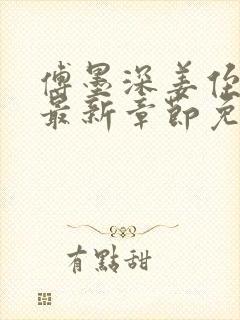 傅墨深姜任
最新章節免
有點甜